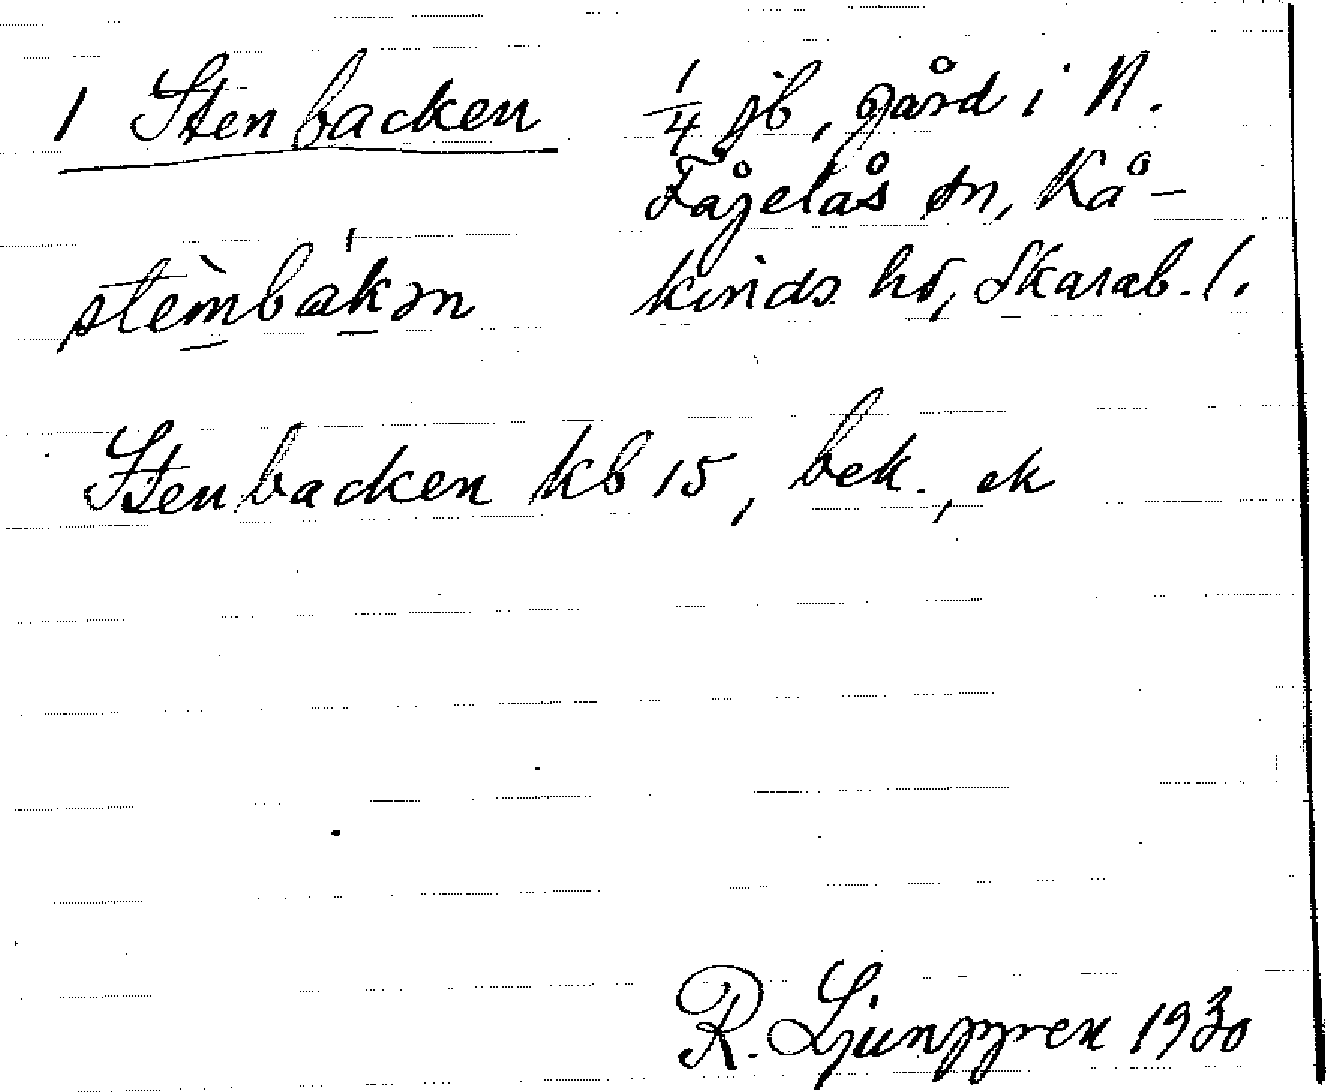 1 Stenbacken
1/4 jb, gård i N.
Fågelås sn, Kå-
kinds hd, Skarab. l.
stèmbákən
Stenbacken kb 15, bek., ek
R. Ljunggren 1930